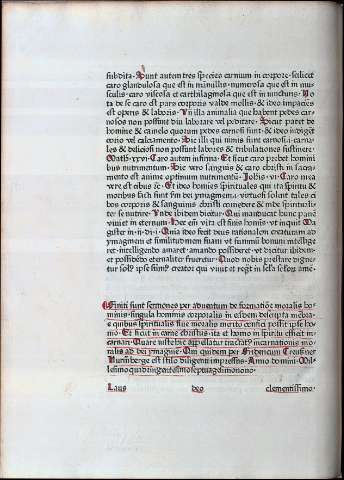 subdita. Sunt autem tres species carnium in corpore. scilicet
caro glandulosa que est in mamillis. numerosa que est in mu-
sculis. caro viscosa et carthilaginosa que est in iuncturis. No
ta de se caro est pars corporis valde mollis. & ideo impaciēs
est operis & laboris. Vn illa animalia que habent pedes car-
nosos non possunt diu laborare vel peditare. Sicut patet de
homine & camelo quorum pedes carnosi sunt. & ideo indigēt
corio vel calciamento. Sic illi qui nimis sunt carnosi. i. carna-
les & deliciosi non possunt labores & tribulationes sustinere
Math. xxvi. Caro autem infirma. Et sicut caro prebet homini
bus nutrimentum. Sic vero sanguis & caro christi in sacra-
mento est anime optimum nutrimentū. Johis. vi. Caro mea
vere est cibus &c. Et ideo homines spirituales qui ita spiritu &
moribus facti sunt ad dei ymaginem. virtuosi solent tales ci
bos corporis & sanguinis christi comedere & inde spirituali-
ter se nutrire. Vnde ibidem dicitur. Qui manducat hunc panē
viuet in eternum. Hec est vita et finis hominis vt inquit Ma
gister in. ii. di. i. Quia ideo fecit deus rationalem creaturam ad
ymaginem et similitudinem suam vt summū bonum intellige
ret. intelligendo amaret. amando possideret. vt dicitur ibidem.
et possidēdo eternaliter frueretur. Quod nobis prestare digne
tur solꝰ ipse summꝰ creator qui viuit et regnat in secła secłoꝝ amē.
Finiti sunt sermones per aduentum de formatiōe moralis ho-
minis. singula hominis corporalis in eisdem descripta mēbra.
e quibus spiritualis siue moralis merito confici possit ipse ho
mo. Et sicut in carne christus. ita et homo in spiritu efficit in
carnari. Quare iuste hic appellatur tractatꝰ incarnationis mo
ralis ad dei ymaginē. Qui quidem per Fridericum Creußner
Nurmberge est stilo diligenti impressus. Anno domini. Mil-
lesimo quadringentesimo septuagesimonono.
Laus deo clementissimo.